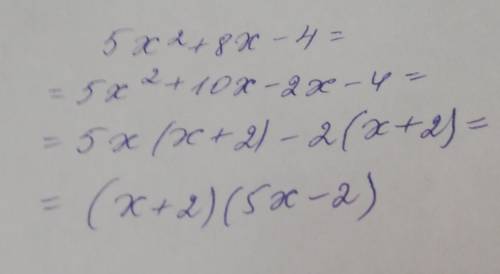 5x²+8x-4=
=5x²+10x-2x-4=
=5x(x+2)-2(x+2)=
=(x+2)(5x-2)